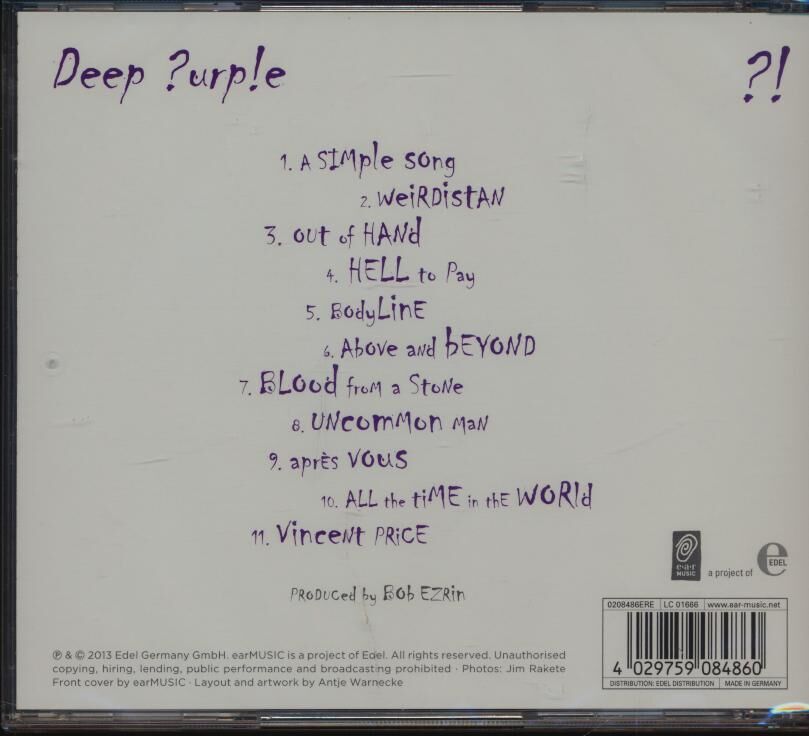 Deep ?urp!e
?!
1. A SIMple song
2. WeiRDistAN
3. out of HANd
4. HELL to Pay
5. BodyLinE
6. Above and bEYOND
7. BLood froM a StoNe
8. UNcomMon MaN
9. aprÈs VOUS
10. ALL the tiME in thE WORld
11. VinceNt PRiCE
PRoduced by Bob EZRin
e·a·r
MUSIC
a project of
e
EDEL
0208486ERE
LC 01666
www.ear-music.net
4 029759 084860
DISTRIBUTION: EDEL DISTRIBUTION
MADE IN GERMANY
℗ & © 2013 Edel Germany GmbH. earMUSIC is a project of Edel. All rights reserved. Unauthorised
copying, hiring, lending, public performance and broadcasting prohibited · Photos: Jim Rakete
Front cover by earMUSIC · Layout and artwork by Antje Warnecke